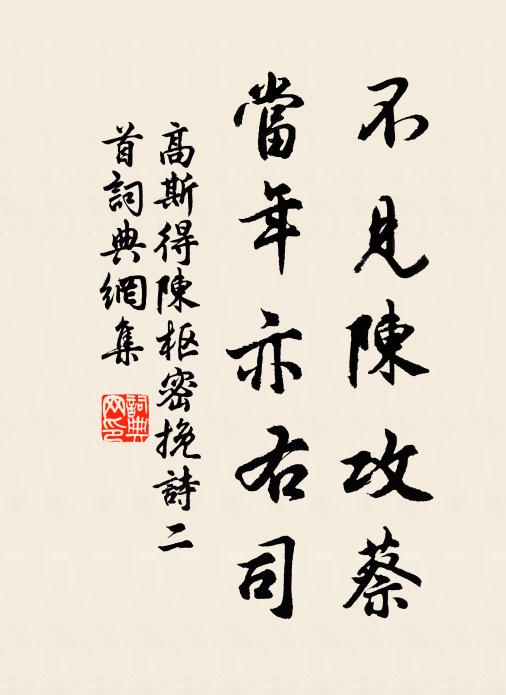 不見陳攻蔡
當年亦右司
高斯得陳枢密挽詩二
首詞典網集
詞典
网印